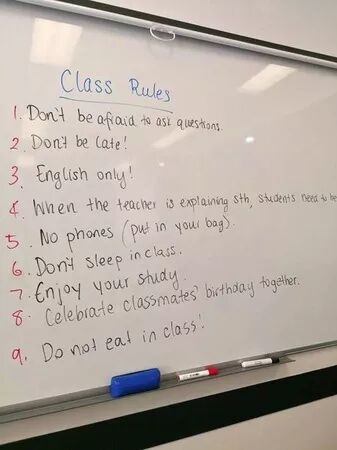 Class Rules
1. Don't be afraid to ask questions.
2. Don't be late!
3. English only!
4. When the teacher is explaining sth, students need to be
5. No phones (put in your bag).
6. Don't sleep in class.
7. Enjoy your study.
8. Celebrate classmates' birthday together.
9. Do not eat in class!